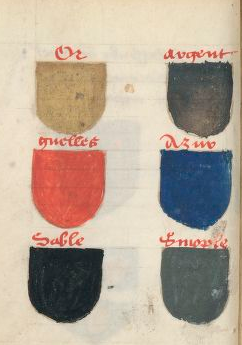 Or
Argent
guelles
Azur
Sable
Sinople